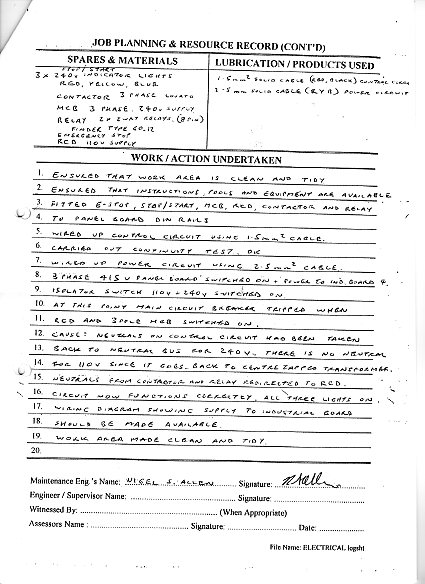 JOB PLANNING & RESOURCE RECORD (CONT'D)
SPARES & MATERIALS
STOP/START
3 x 240v INDICATOR LIGHTS
RED, YELLOW, BLUE
CONTACTOR 3 PHASE
MCB 3 PHASE. 240v SUPPLY
RELAY 2 x 2WAY RELAYS. (8 PIN)
FINDER TYPE 60.12
EMERGENCY STOP
RCD 110v SUPPLY
LUBRICATION / PRODUCTS USED
1.5mm² SOLID CABLE (RED, BLACK) CONTROL
2.5mm² SOLID CABLE (R Y B) POWER CIRCUIT
WORK / ACTION UNDERTAKEN
1. ENSURED THAT WORK AREA IS CLEAN AND TIDY
2. ENSURED THAT INSTRUCTIONS, TOOLS AND EQUIPMENT ARE AVAILABLE
3. FITTED E-STOP, STOP/START, MCB, RCD, CONTACTOR AND RELAY
4. TO PANEL BOARD DIN RAILS
5. WIRED UP CONTROL CIRCUIT USING 1.5mm² CABLE.
6. CARRIED OUT CONTINUITY TEST, OK
7. WIRED UP POWER CIRCUIT USING 2.5mm² CABLE.
8. 3 PHASE 415V PANEL BOARD SWITCHED ON + POWER TO IND. BOARD 4.
9. ISOLATOR SWITCH 110v + 240v SWITCHED ON
10. AT THIS POINT MAIN CIRCUIT BREAKER TRIPPED WHEN
11. RCD AND 3POLE MCB SWITCHED ON.
12. CAUSE: NEUTRALS ON CONTROL CIRCUIT HAD BEEN TAKEN
13. BACK TO NEUTRAL BUS FOR 240v. THERE IS NO NEUTRAL
14. FOR 110v SINCE IT GOES BACK TO CENTRE TAPPED TRANSFORMER.
15. NEUTRALS FROM CONTACTOR AND RELAY REDIRECTED TO RCD.
16. CIRCUIT NOW FUNCTIONS CORRECTLY, ALL THREE LIGHTS ON.
17. WIRING DIAGRAM SHOWING SUPPLY TO INDUSTRIAL BOARD
18. SHOULD BE MADE AVAILABLE.
19. WORK AREA MADE CLEAN AND TIDY.
20.
Maintenance Eng.'s Name: NIGEL S. ALLEN Signature:
Engineer / Supervisor Name: Signature:
Witnessed By: (When Appropriate)
Assessors Name : Signature: Date:
File Name: ELECTRICAL logsht